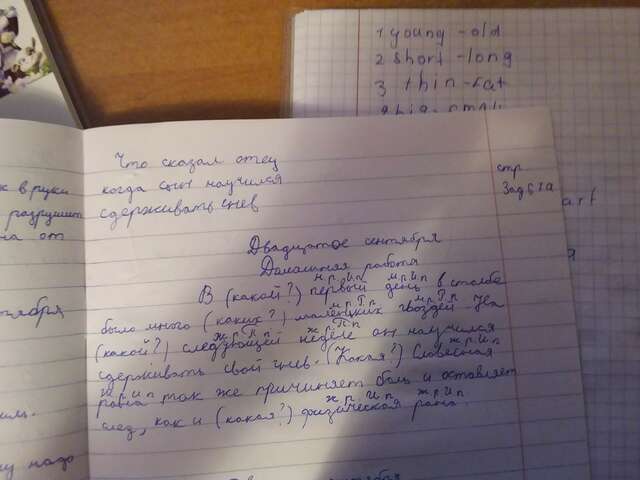 1 young - old
2 short - long
3 thin - fat
Что сказал отец
когда сын научился
сдерживать гнев
стр
Зад 61а
в руки
разрушит
на от
Двадцатое сентября
Домашняя работа
м р ип м р и п
В (какой?) первый день в столбе
м р Р п м р Р п
было много (каких?) маленьких гвоздей. На
ж р П п ж р П п
(какой?) следующей неделе он научился
ж р и п
сдерживать свой гнев. (Какая?) Словесная
ж р и п
рана так же причиняет боль и оставляет
ж р и п ж р и п
след, как и (какая?) физическая рана.
надо